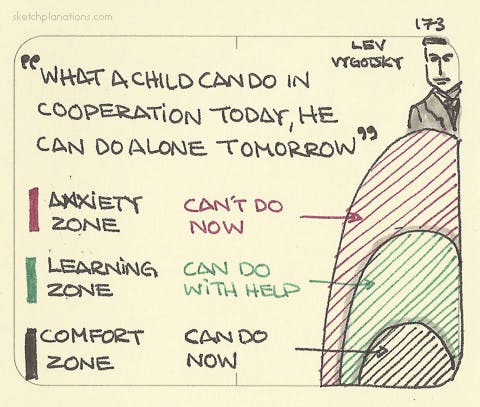 sketchplanations.com
173
LEV
VYGOTSKY
"WHAT A CHILD CAN DO IN
COOPERATION TODAY, HE
CAN DO ALONE TOMORROW"
ANXIETY
ZONE
CAN'T DO
NOW
LEARNING
ZONE
CAN DO
WITH HELP
COMFORT
ZONE
CAN DO
NOW